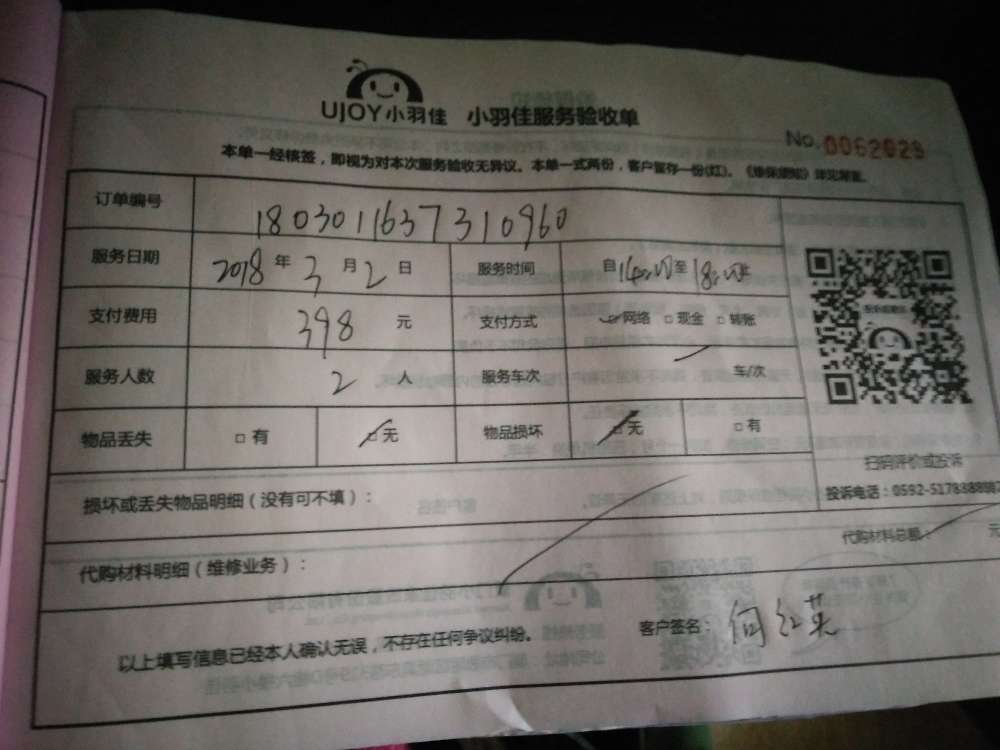 UJOY小羽佳 小羽佳服务验收单
No. 0062029
本单一经核签，即视为对本次服务验收无异议。本单一式两份，客户留存一份(红)。
订单编号 1803011637310960
服务日期 2018 年 3 月 2 日 服务时间 自14:00至18:00止
支付费用 398 元 支付方式 ☑网络 □现金 □转账
服务人数 2 人 服务车次 车/次
物品丢失 □有 ☑无 物品损坏 ☑无 □有
扫码评价或投诉
损坏或丢失物品明细（没有可不填）：
投诉电话：0592-5178888
代购材料明细（维修业务）： 代购材料总额： 元
以上填写信息已经本人确认无误，不存在任何争议纠纷。 客户签名： 何红英